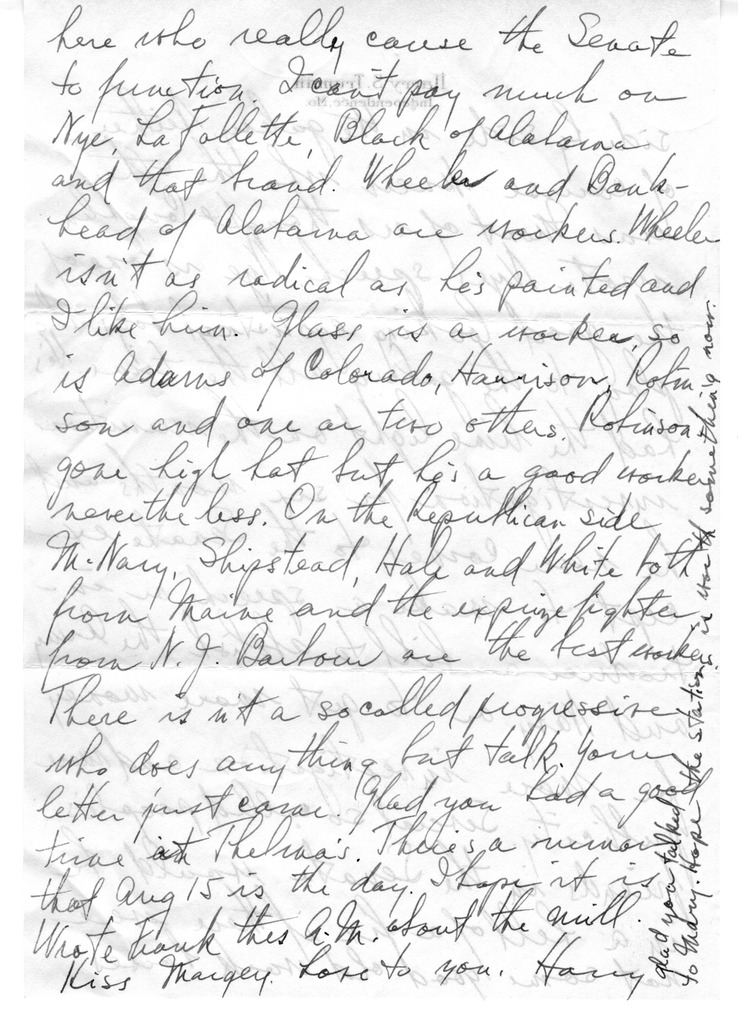 here who really cause the Senate
to function. I can't pay much on
Nye, La Follette, Black of Alabama
and that brand. Wheeler and Bank-
head of Alabama are workers. Wheeler
isn't as radical as he's painted and
I like him. Glass is a worker, so
is Adams of Colorado, Harrison, Robin
son and one or two others. Robinson
gone high hat but he's a good worker
nevertheless. On the Republican side
McNary, Shipstead, Hale and White both
from Maine and the exprizefighter
from N.J. Barbour are the best workers.
There isn't a socalled progressive
who does anything but talk. Your
letter just came. Glad you had a good
time at Thelma's. There's a rumor
that Aug 15 is the day. I hope it is
Wrote Frank this A.M. about the mill.
Kiss Margey. Love to you. Harry
glad you talked
to Mary. Hope the station is worth something now.
Harry S. Truman
Independence, Mo.